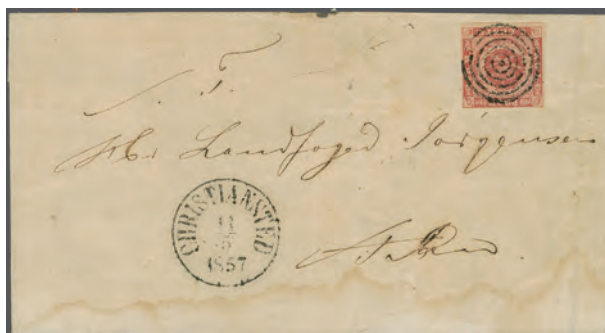 S. T.
Hr. Landfoged Jørgensen
CHRISTIANSTED
11
5
1857